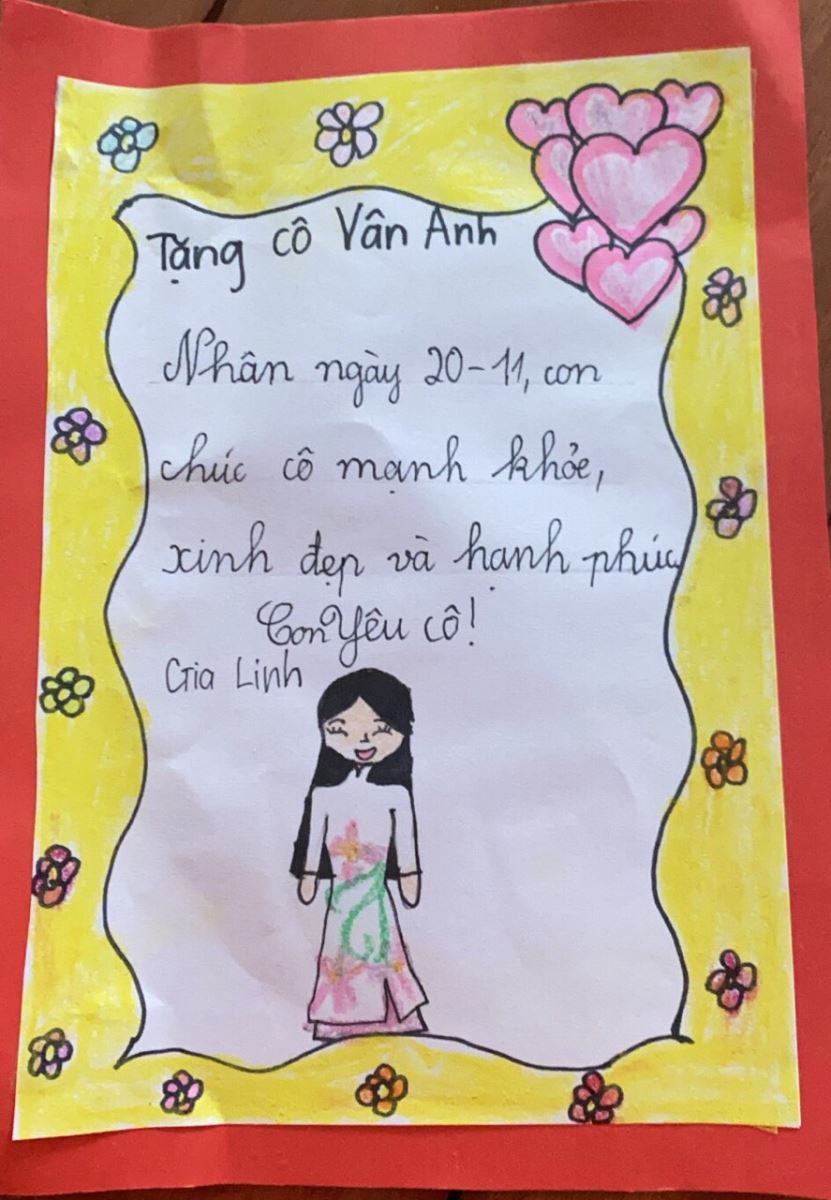 Tặng cô Vân Anh
Nhân ngày 20-11, con
chúc cô mạnh khỏe,
xinh đẹp và hạnh phúc
Con yêu cô!
Gia Linh